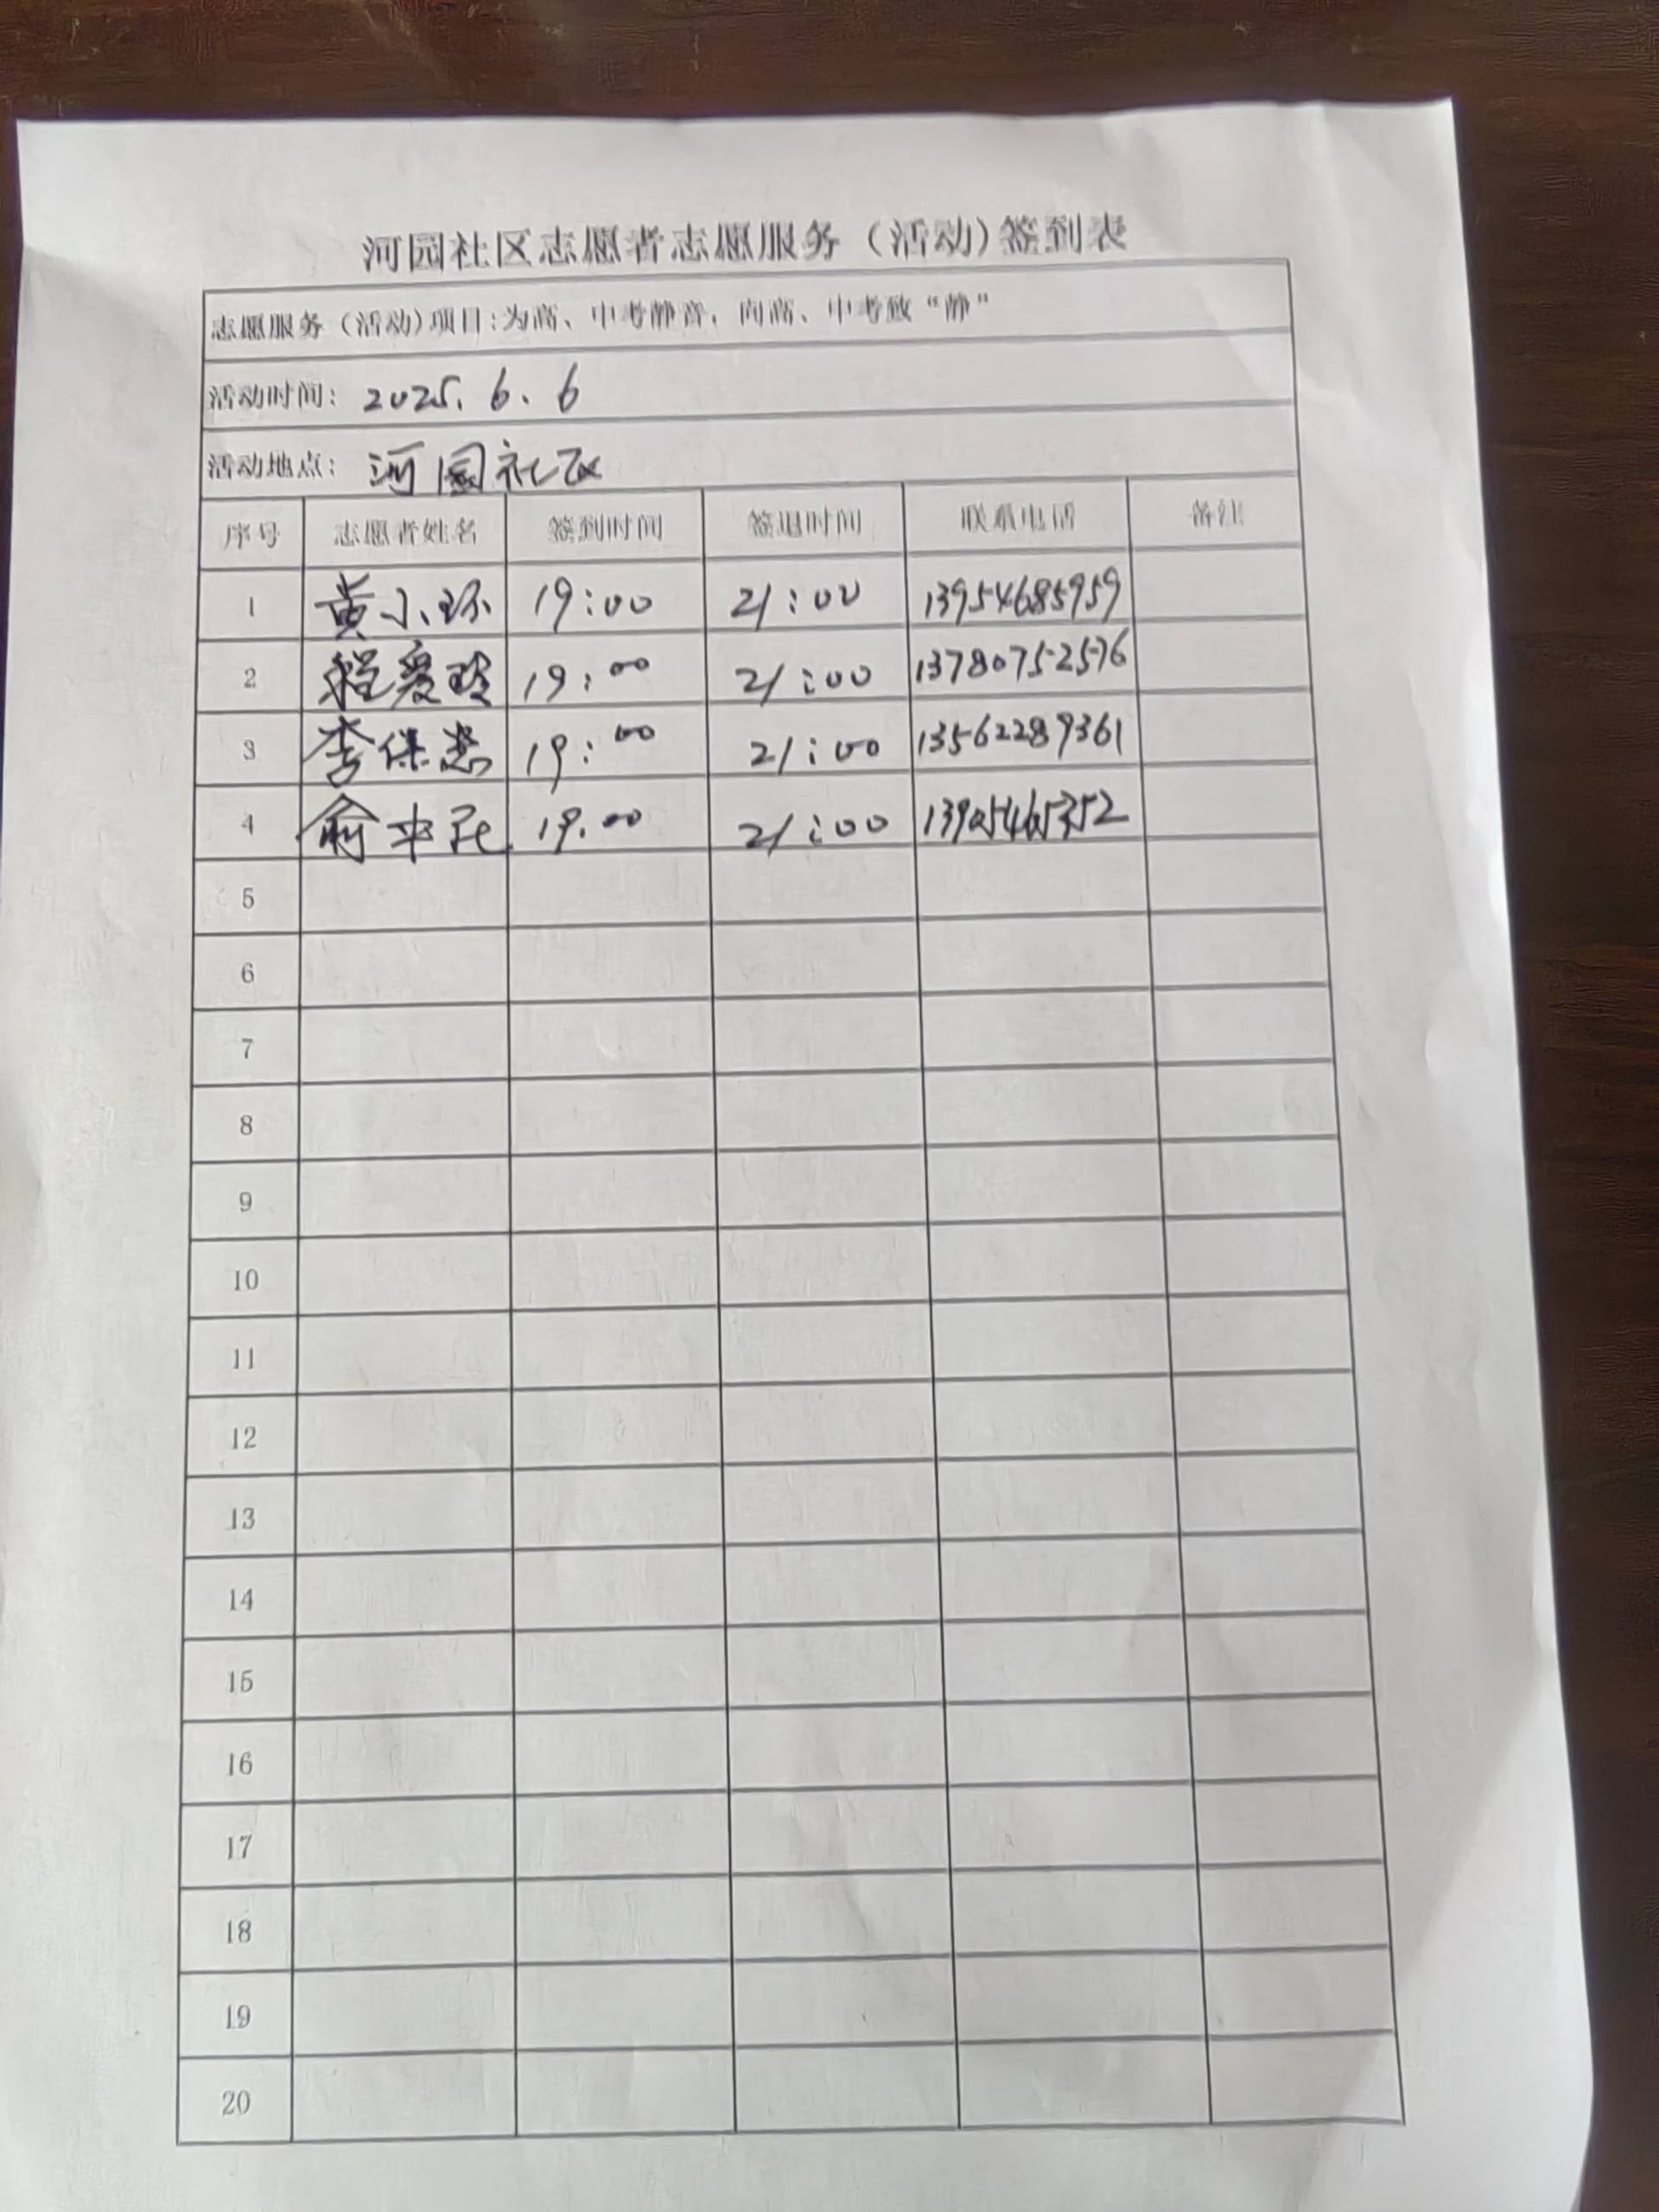 河园社区志愿者志愿服务（活动）签到表
志愿服务（活动）项目：为高、中考静音，向高、中考致“静”
活动时间：2025.6.6
活动地点：河园社区
序号 志愿者姓名 签到时间 签退时间 联系电话 备注
1 黄小环 19:00 21:00 13954685959
2 程爱玲 19:00 21:00 13780752576
3 李保忠 19:00 21:00 13562289361
4 俞 19.00 21:00 13905465352
5
6
7
8
9
10
11
12
13
14
15
16
17
18
19
20